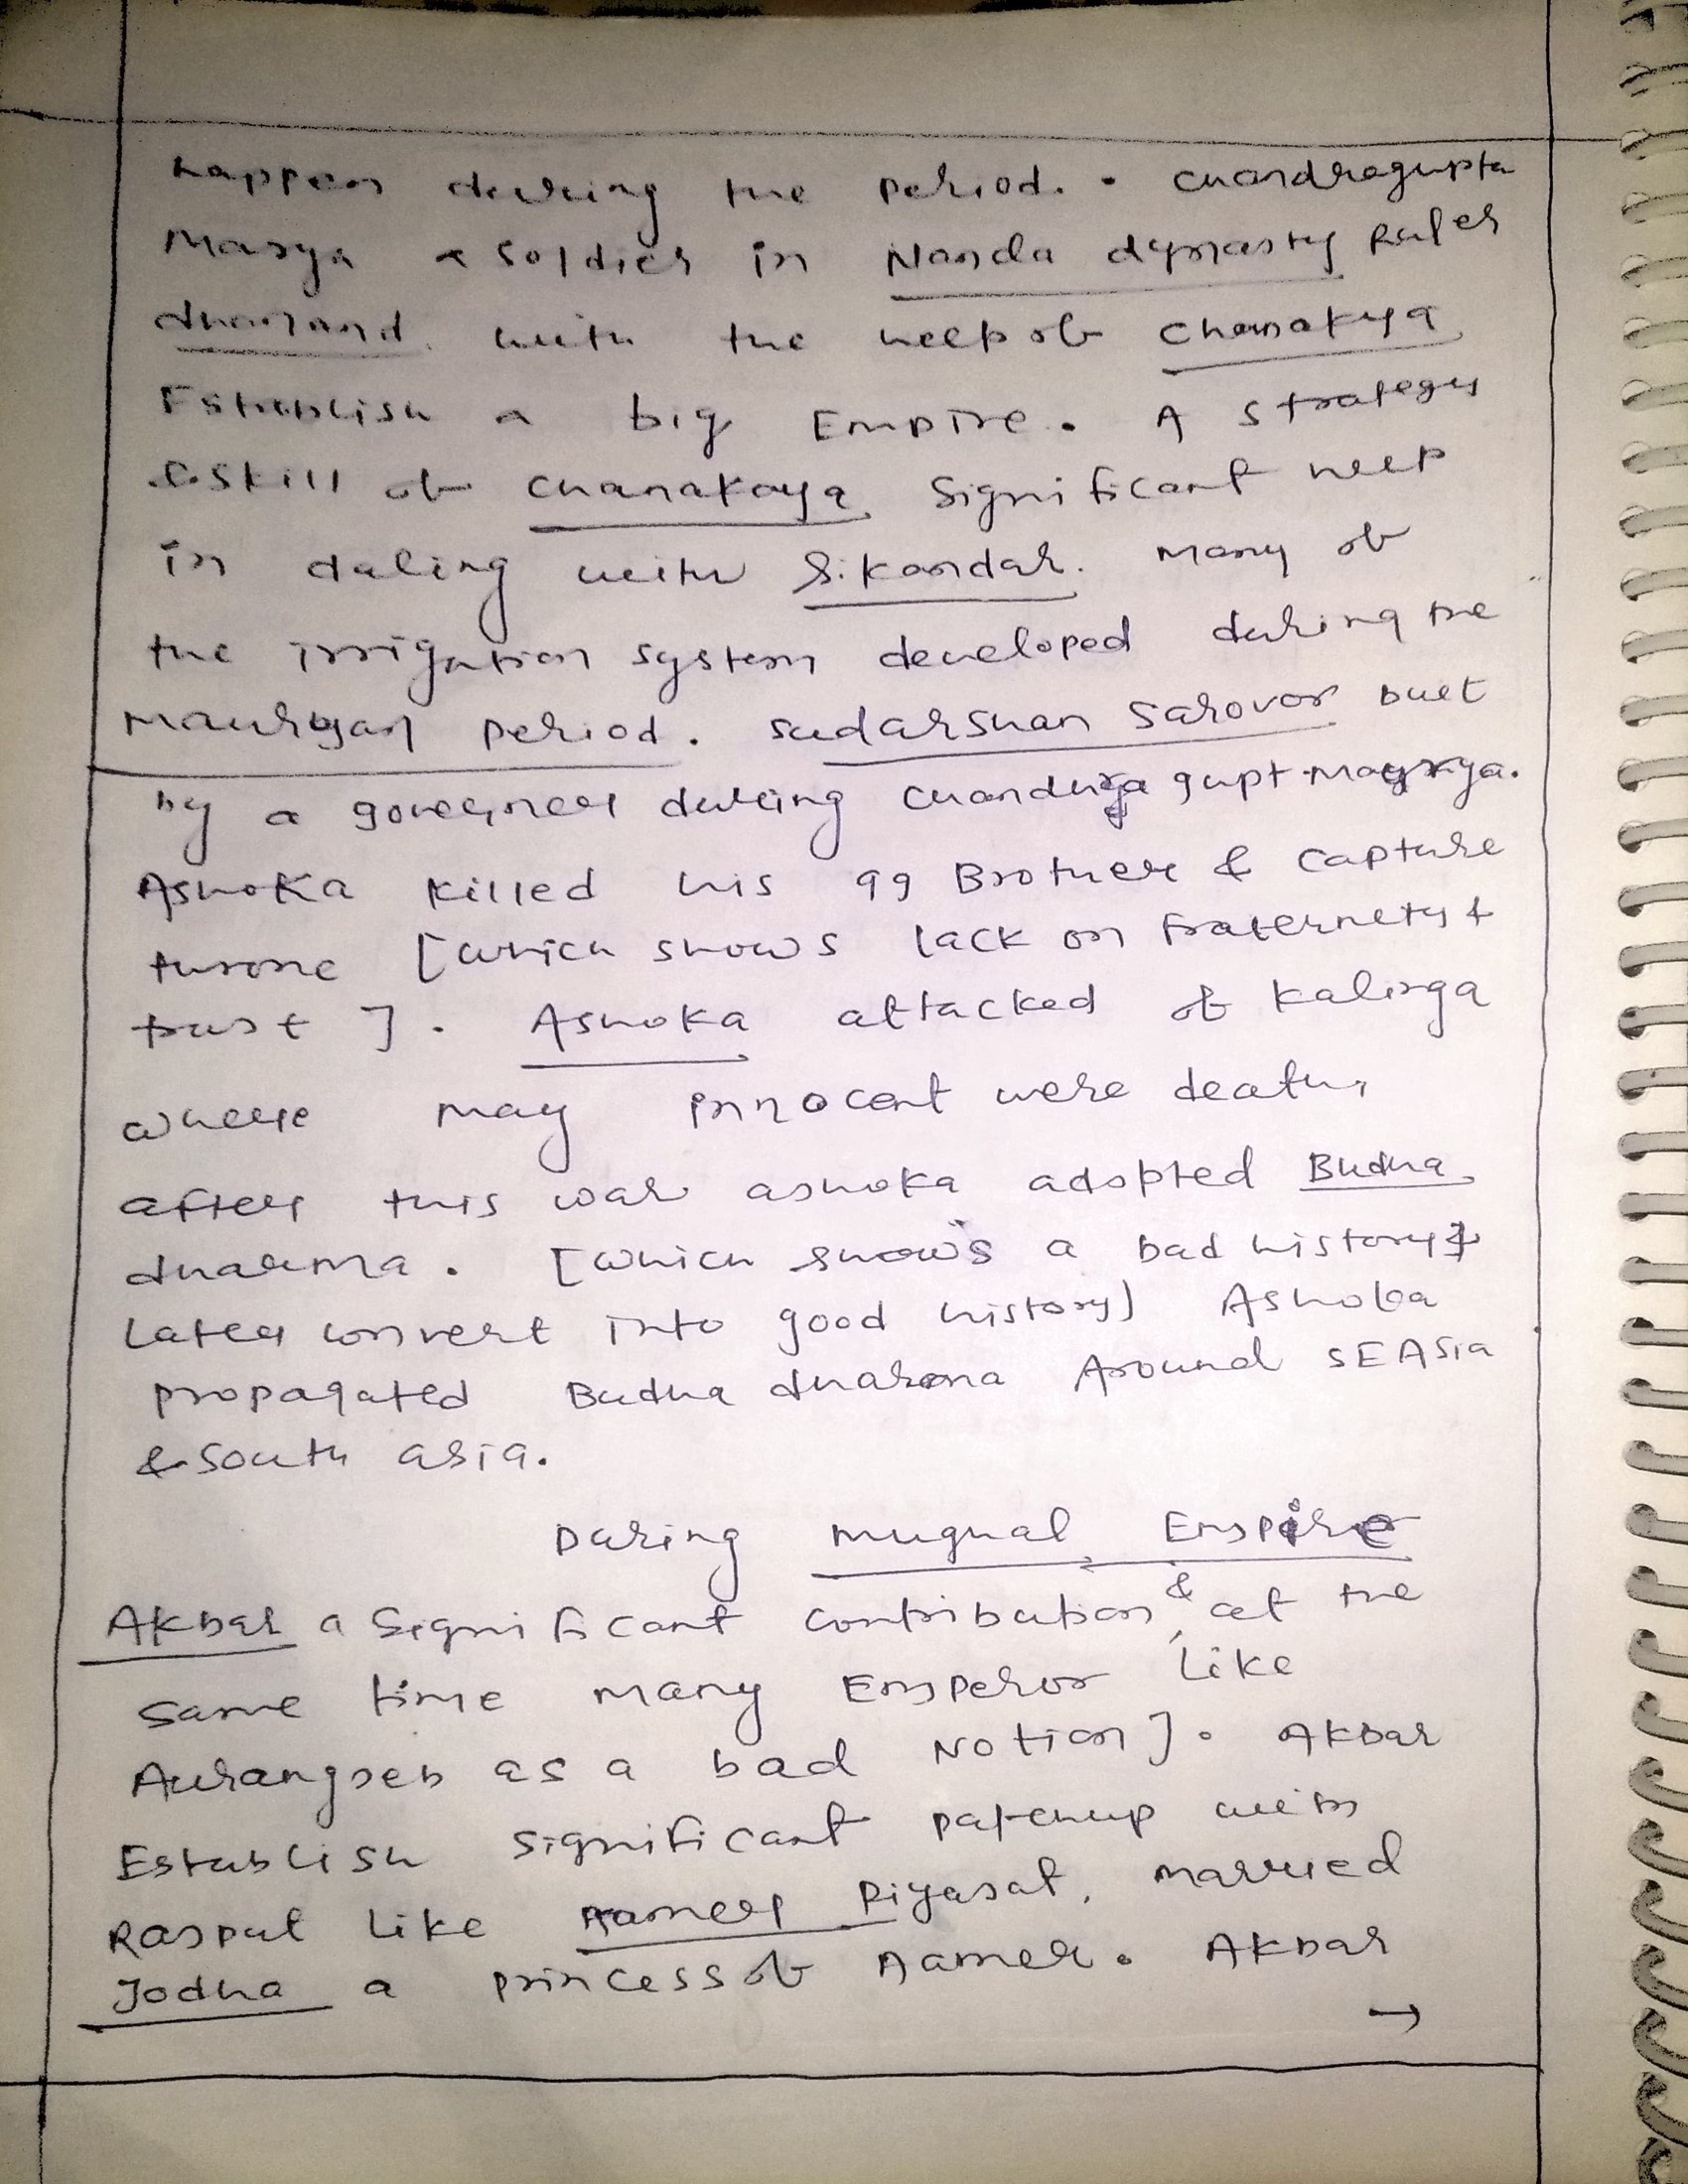 happen during the period. • Chandragupta
Maurya a soldier in Nanda dynasty Ruler
dhanand with the help of Chanakya
Establish a big Empire. A strategy
& skill of Chanakaya significant help
in daling with Sikandar. Many of
the irrigation system developed during the
Mauryan period. Sudarshan Sarovar built
by a governer during Chandrya gupt Maurya.
Ashoka killed his 99 Brother & capture
throne [which shows lack on fraternety &
trust]. Ashoka attacked of kalinga
where may innocent were death,
after this war ashoka adopted Budha
dharma. [which shows a bad history
Later convert into good history) Ashoka
propagated Budha dharma Around SE Asia
& South asia.
During Mughal Empire
Akbar a significant contribution & at the
same time many Emperor like
Aurangzeb as a bad Notion]. Akbar
Establish significant patchup with
Rajput like Aameer Riyasat, married
Jodha a princess of Aamer. Akbar
→